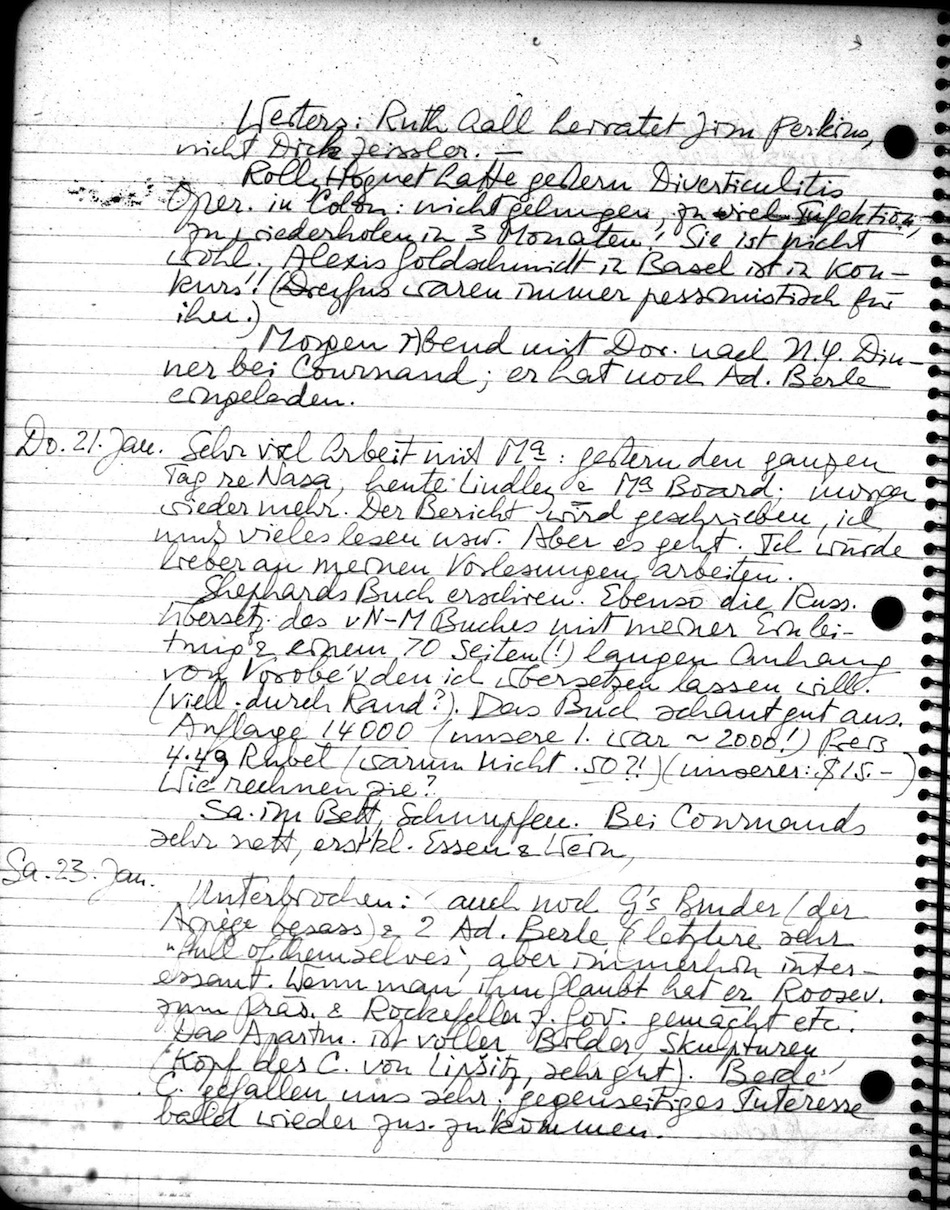 Weiters: Ruth Aall heiratet Jim Perkins,
nicht Dick Zeissler. —
Rolly Hoguet hatte gestern Diverticulitis
Oper. in Colon: nicht gelungen, zu viel Infektion,
zu wiederholen in 3 Monaten! Sie ist nicht
wohl. Alexis Goldschmidt in Basel ist in Kon-
kurs! (Dreifus waren immer pessimistisch für
ihn.)
Morgen Abend mit Dor. nach N.Y. Din-
ner bei Cournand; er hat noch Ad. Berle
eingeladen.
Do. 21. Jan. Sehr viel Arbeit mit Ma: gestern den ganzen
Tag re Nasa, heute Lindley & Ma Board; morgen
wieder mehr. Der Bericht wird geschrieben, ich
muß vieles lesen usw. Aber es geht. Ich würde
lieber an meinen Vorlesungen arbeiten.
Shephards Buch erschien. Ebenso die Russ.
Übersetz. des vN-M Buches mit meiner Einlei-
tung & einem 70 Seiten (!) langen Anhang
von Vorobév den ich übersetzen lassen will.
(viell. durch Rand?). Das Buch schaut gut aus.
Auflage 14000 (unsere 1. war ~ 2000!) Preis
4.49 Rubel (warum nicht .50?!) (unserer: $15.-)
Wie rechnen sie?
Sa. im Bett, Schnupfen. Bei Cournands
sehr nett, erstkl. Essen & Wein,
Sa. 23. Jan.
Unterbrochen: auch noch G's Bruder (der
Arpège besass) & 2 Ad. Berle (letztere sehr
"full of themselves", aber immerhin inter-
essant. Wenn man ihm glaubt hat er Roosev.
zum Präs. & Rockefeller z. Gov. gemacht etc.
Das Apartm. ist voller Bilder Skulpturen
(Kopf des C. von Lipšitz, sehr gut). Beide
C. gefallen uns sehr; gegenseitiges Interesse
bald wieder zus. zu kommen.